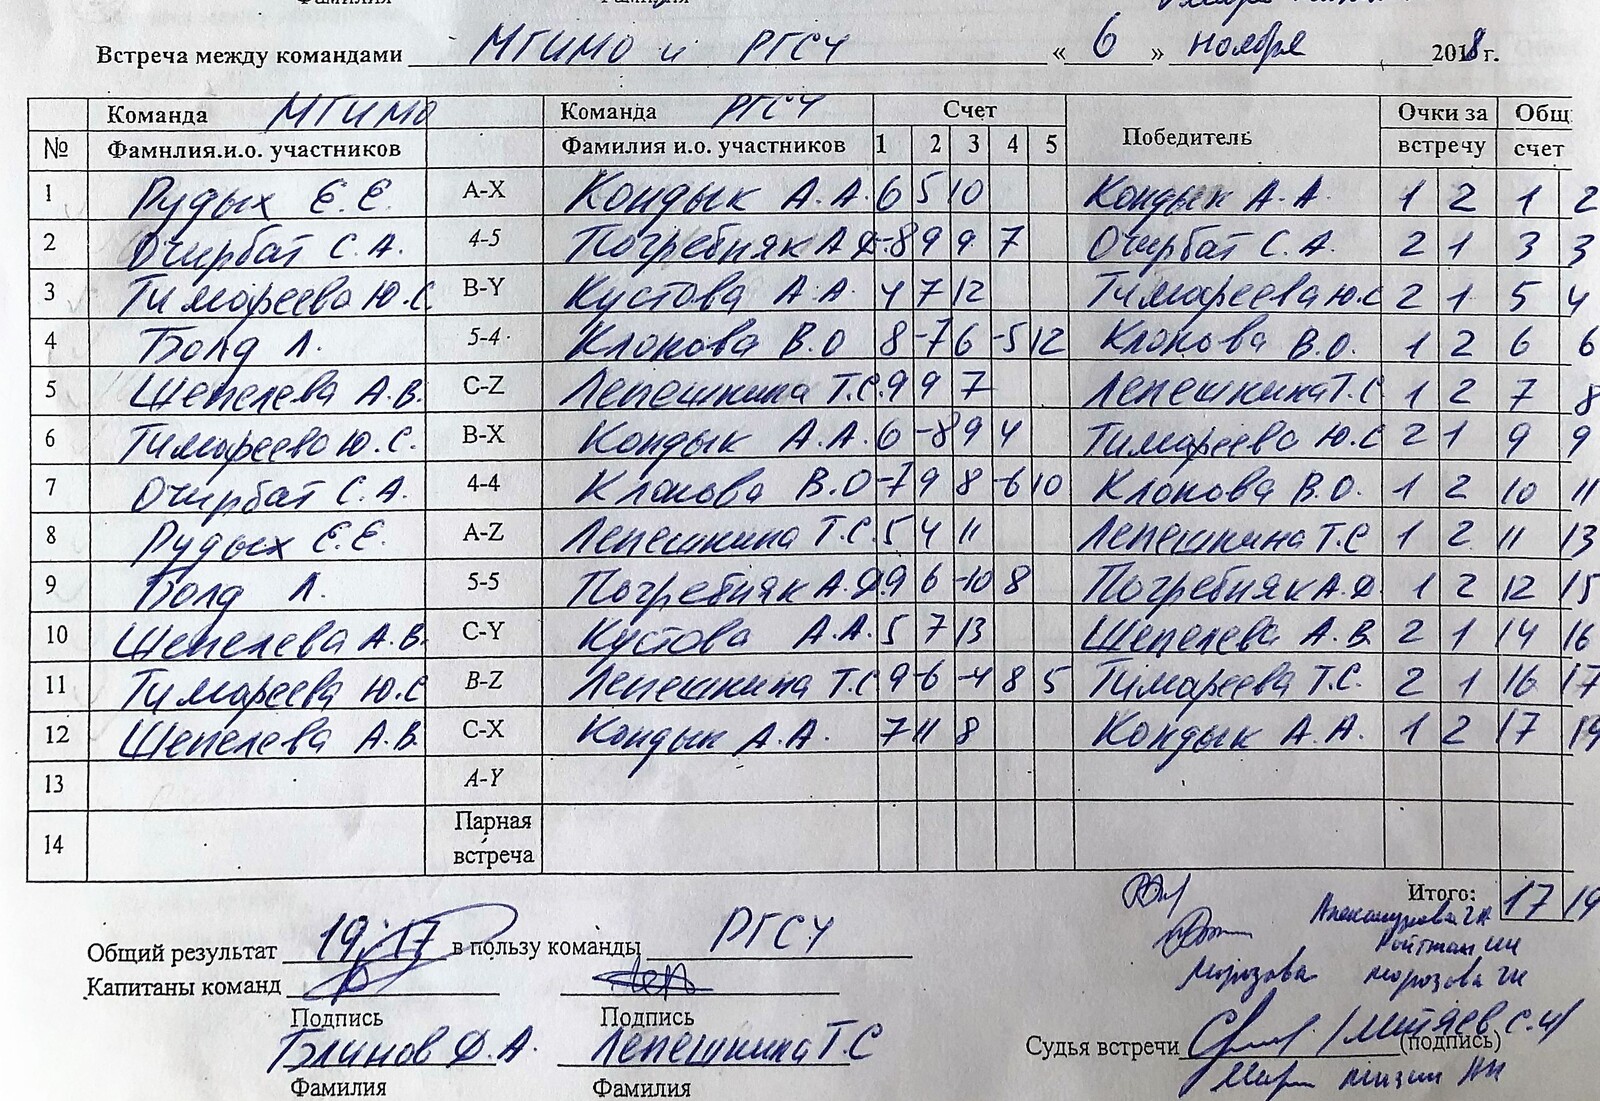 Встреча между командами МГИМО и РГСУ « 6 » ноября 2018 г.
Команда МГИМО Команда РГСУ Счет Победитель Очки за Общ
№ Фамнлия.и.о. участников Фамилия и.о. участников 1 2 3 4 5 встречу счет
1 Рудых Е.Е. A-X Кондык А.А. 6 5 10 Кондык А.А. 1 2 1 2
2 Очирбат С.А. 4-5 Погребняк А.Ф. -8 9 9 7 Очирбат С.А. 2 1 3 3
3 Тимареева Ю.С. B-Y Кустова А.А. 4 7 12 Тимареева Ю.С 2 1 5 4
4 Болд Л. 5-4 Клокова В.О 8 -7 6 -5 12 Клокова В.О. 1 2 6 6
5 Шепелева А.В. C-Z Лепешкина Т.С. 9 9 7 Лепешкина Т.С 1 2 7 8
6 Тимареева Ю.С. B-X Кондык А.А. 6 -8 9 4 Тимареева Ю.С 2 1 9 9
7 Очирбат С.А. 4-4 Клокова В.О -7 9 8 -6 10 Клокова В.О. 1 2 10 11
8 Рудых Е.Е. A-Z Лепешкина Т.С. 5 4 11 Лепешкина Т.С 1 2 11 13
9 Болд Л. 5-5 Погребняк А.Ф. 9 6 -10 8 Погребняк А.Ф. 1 2 12 15
10 Шепелева А.В. C-Y Кустова А.А. 5 7 13 Шепелева А.В. 2 1 14 16
11 Тимареева Ю.С B-Z Лепешкина Т.С 9 -6 -4 8 5 Тимареева Т.С. 2 1 16 17
12 Шепелева А.В. C-X Кондык А.А. 7 11 8 Кондык А.А. 1 2 17 19
13 A-Y
14 Парная
встреча
Итого: 17 19
Общий результат 19:17 в пользу команды РГСУ
Ройтман
Капитаны команд
Морозова Морозова
Подпись Подпись
Блинов Ф.А. Лепешкина Т.С
Судья встречи / Митяев С.И/ (подпись)
Фамилия Фамилия